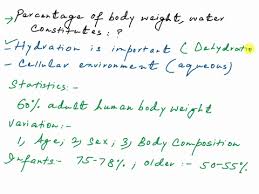 → Percentage of body weight, water
Constitutes : ?
- Hydration is important ( Dehydratio
- Cellular environment (aqueous)
Statistics :-
60% adult human body weight
Variation :-
1, Age ; 2, Sex ; 3, Body Composition
Infants - 75-78% ; older :- 50-55%